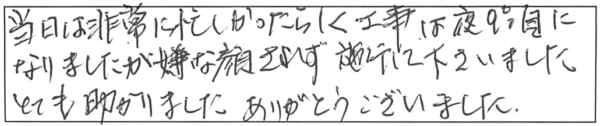 当日は非常に忙しかったらしく工事は夜9時目に
なりましたが嫌な顔されず施行して下さいました。
とても助かりました ありがとうございました.